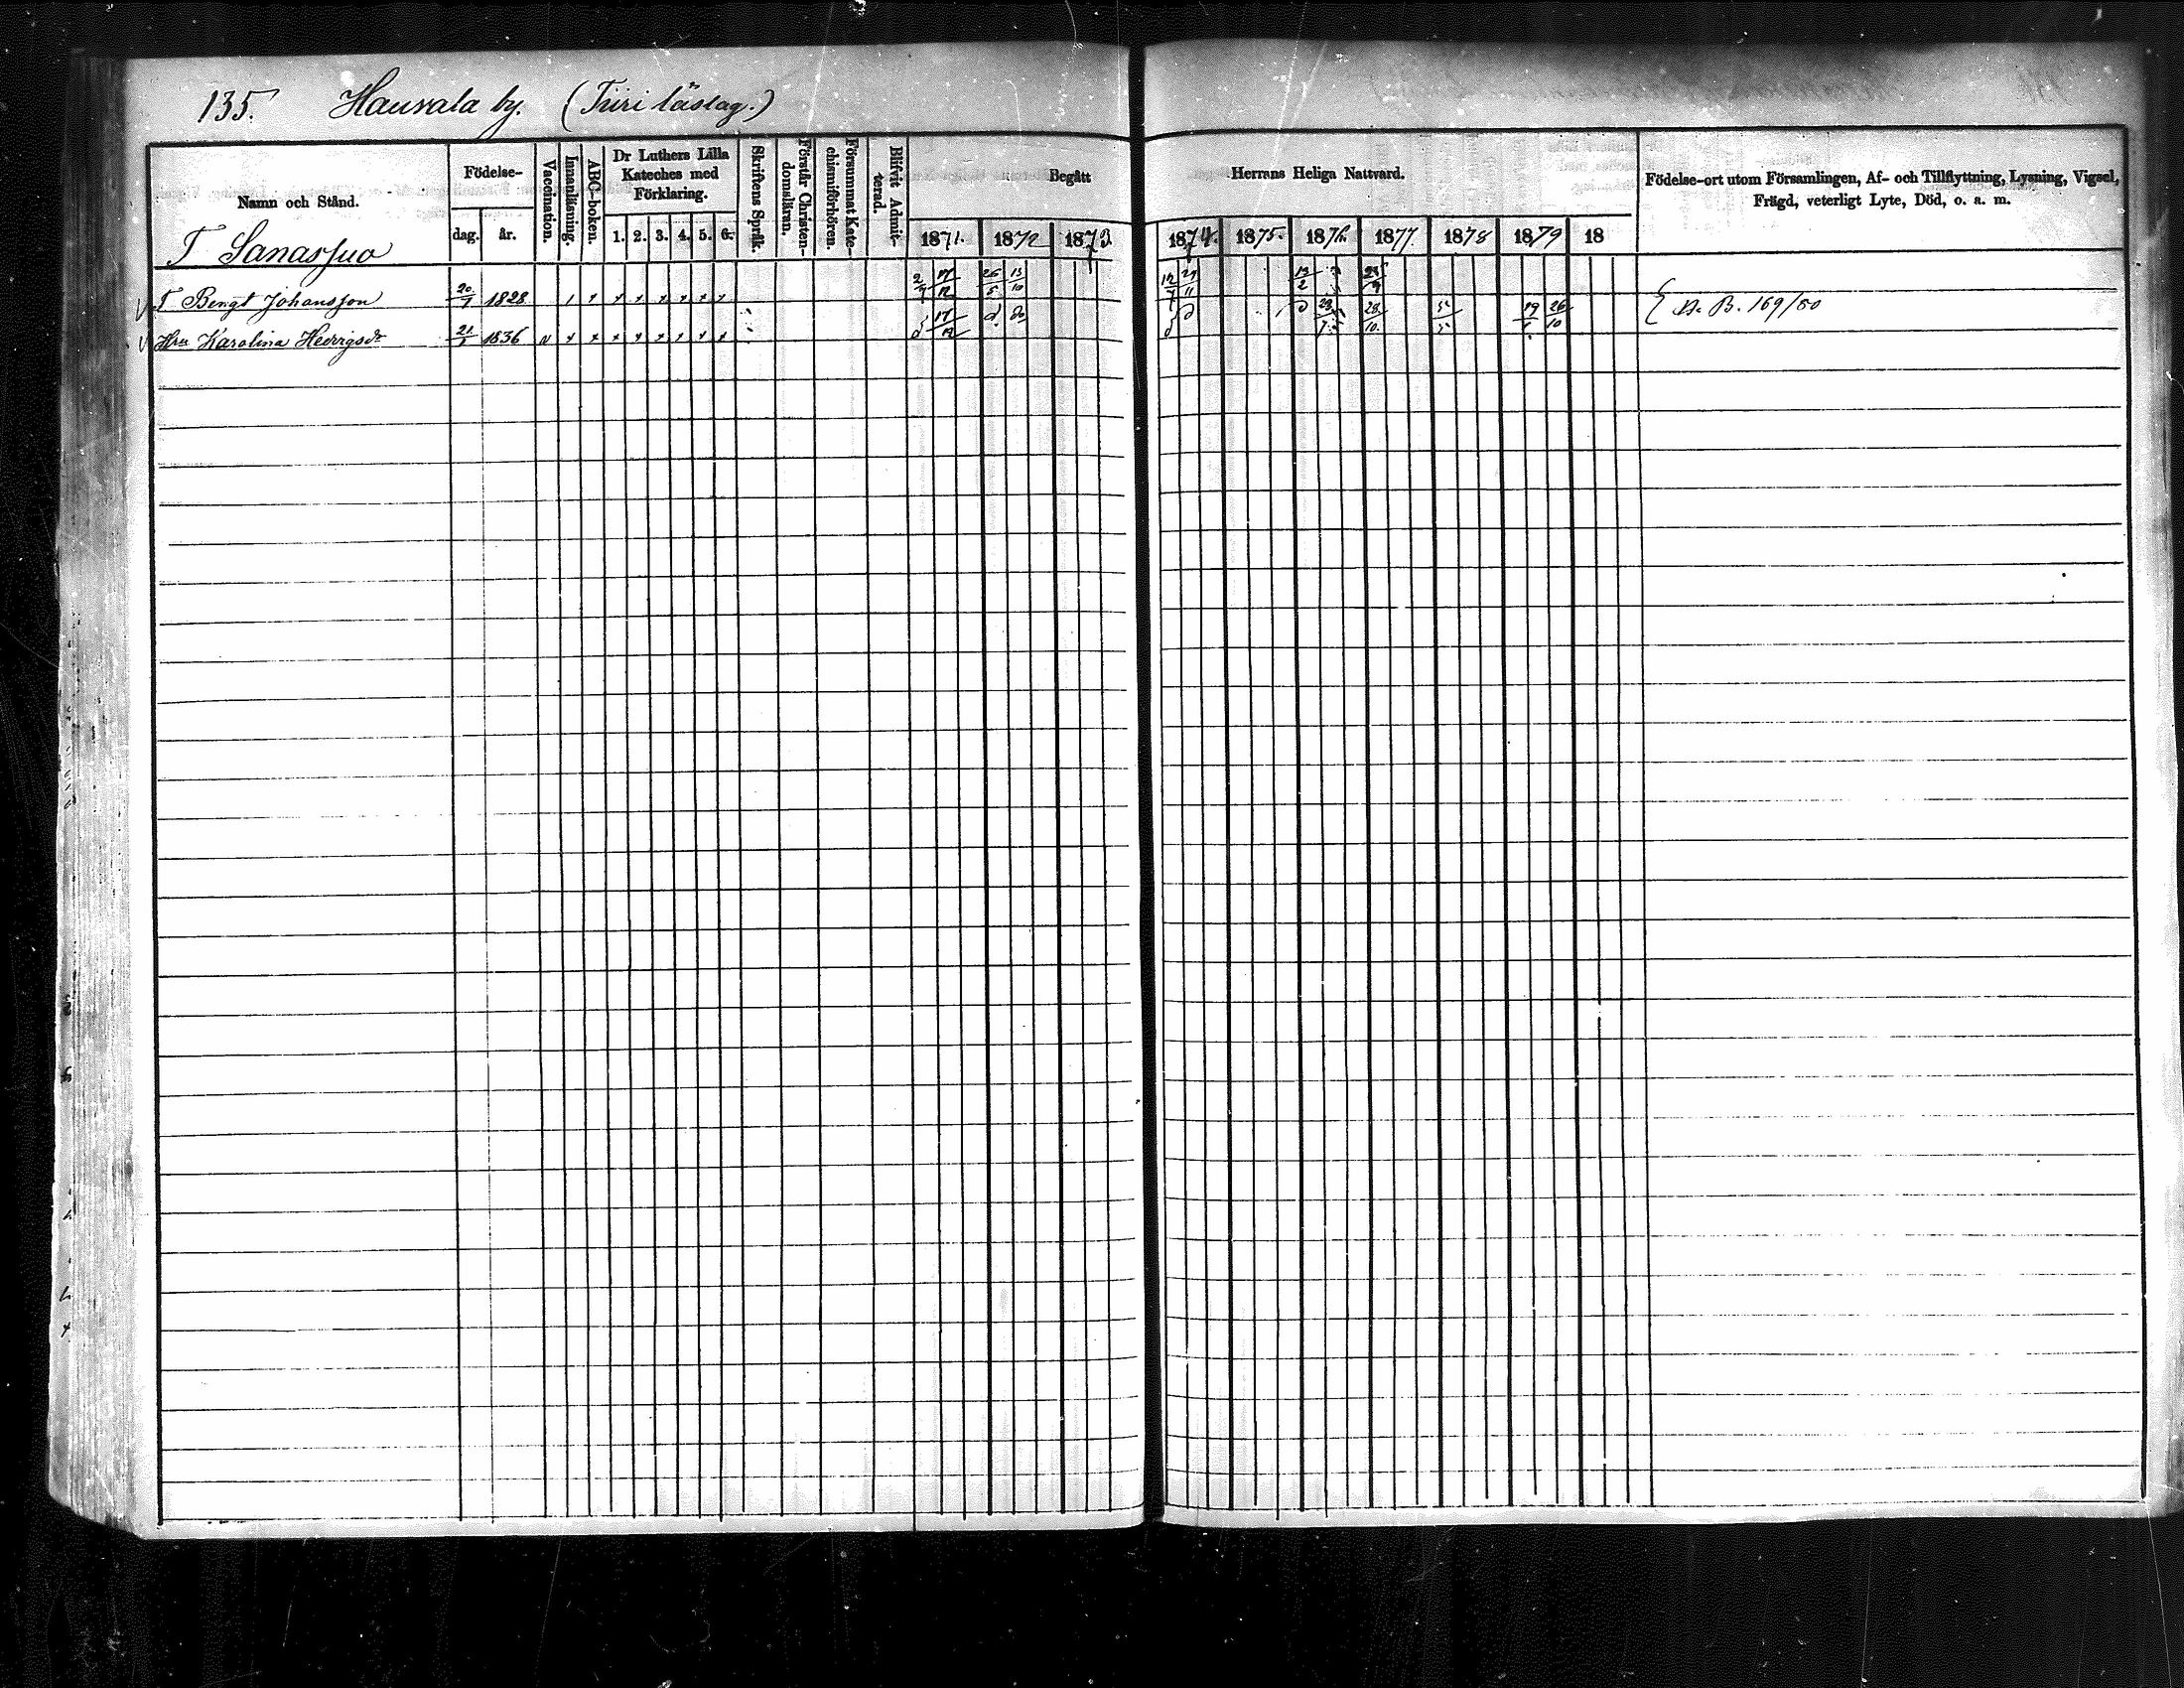 135. Hausala by. (Tiiri läslag.)
Namn och Stånd.
Födelse-
dag. år.
Vaccination.
Innanläsning.
ABC-boken.
Dr Luthers Lilla Kateches med Förklaring.
1. 2. 3. 4. 5. 6.
Skriftens Språk.
Förstår Christendomsläran.
Försummat Katechismiförhören.
Blifvit Admitterad.
Begått Herrans Heliga Nattvard.
1871. 1872 1873. 1874. 1875. 1876. 1877 1878 1879 18
Födelse-ort utom Församlingen, Af- och Tillflyttning, Lysning, Vigsel,
Frägd, veterligt Lyte, Död, o. a. m.
T Sanassuo
T Bengt Johansson 20/7 1828 17/12 26/5 13/10 13/2
Hru Karolina 21 1836 v 17/12 d do 28/10 5/5 26/10
N. B. 169/80